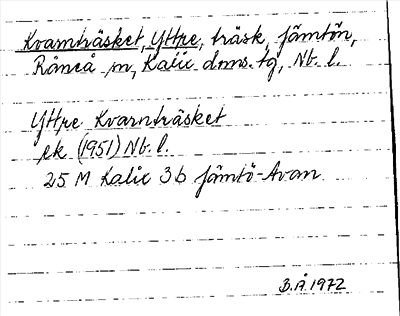 Kvarnträsket, Yttre, träsk, Jämtön,
Råneå sn, Kalix dms. tg, Nb. l.
Yttre Kvarnträsket
ek (1951) Nb. l.
25 M Kalix 3b Jämtö-Avan
B.Å. 1972